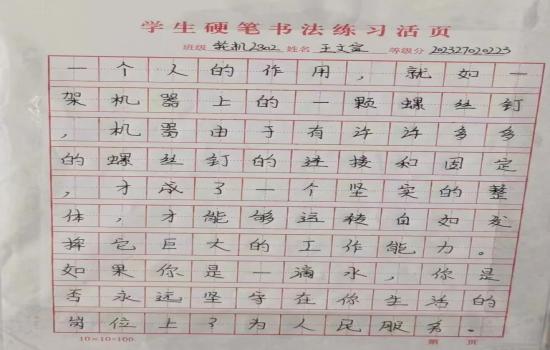 学生硬笔书法练习活页
班级 轮机2302 姓名 王文宣 等级分 202327020223
一个人的作用，就如一
架机器上的一颗螺丝钉
，机器由于有许许多多
的螺丝钉的连接和固定
，才成了一个坚实的整
体，才能够运转自如发
挥它巨大的工作能力。
如果你是一滴水，你是
否永远坚守在你生活的
岗位上？为人民服务。
10×10=100 第 页